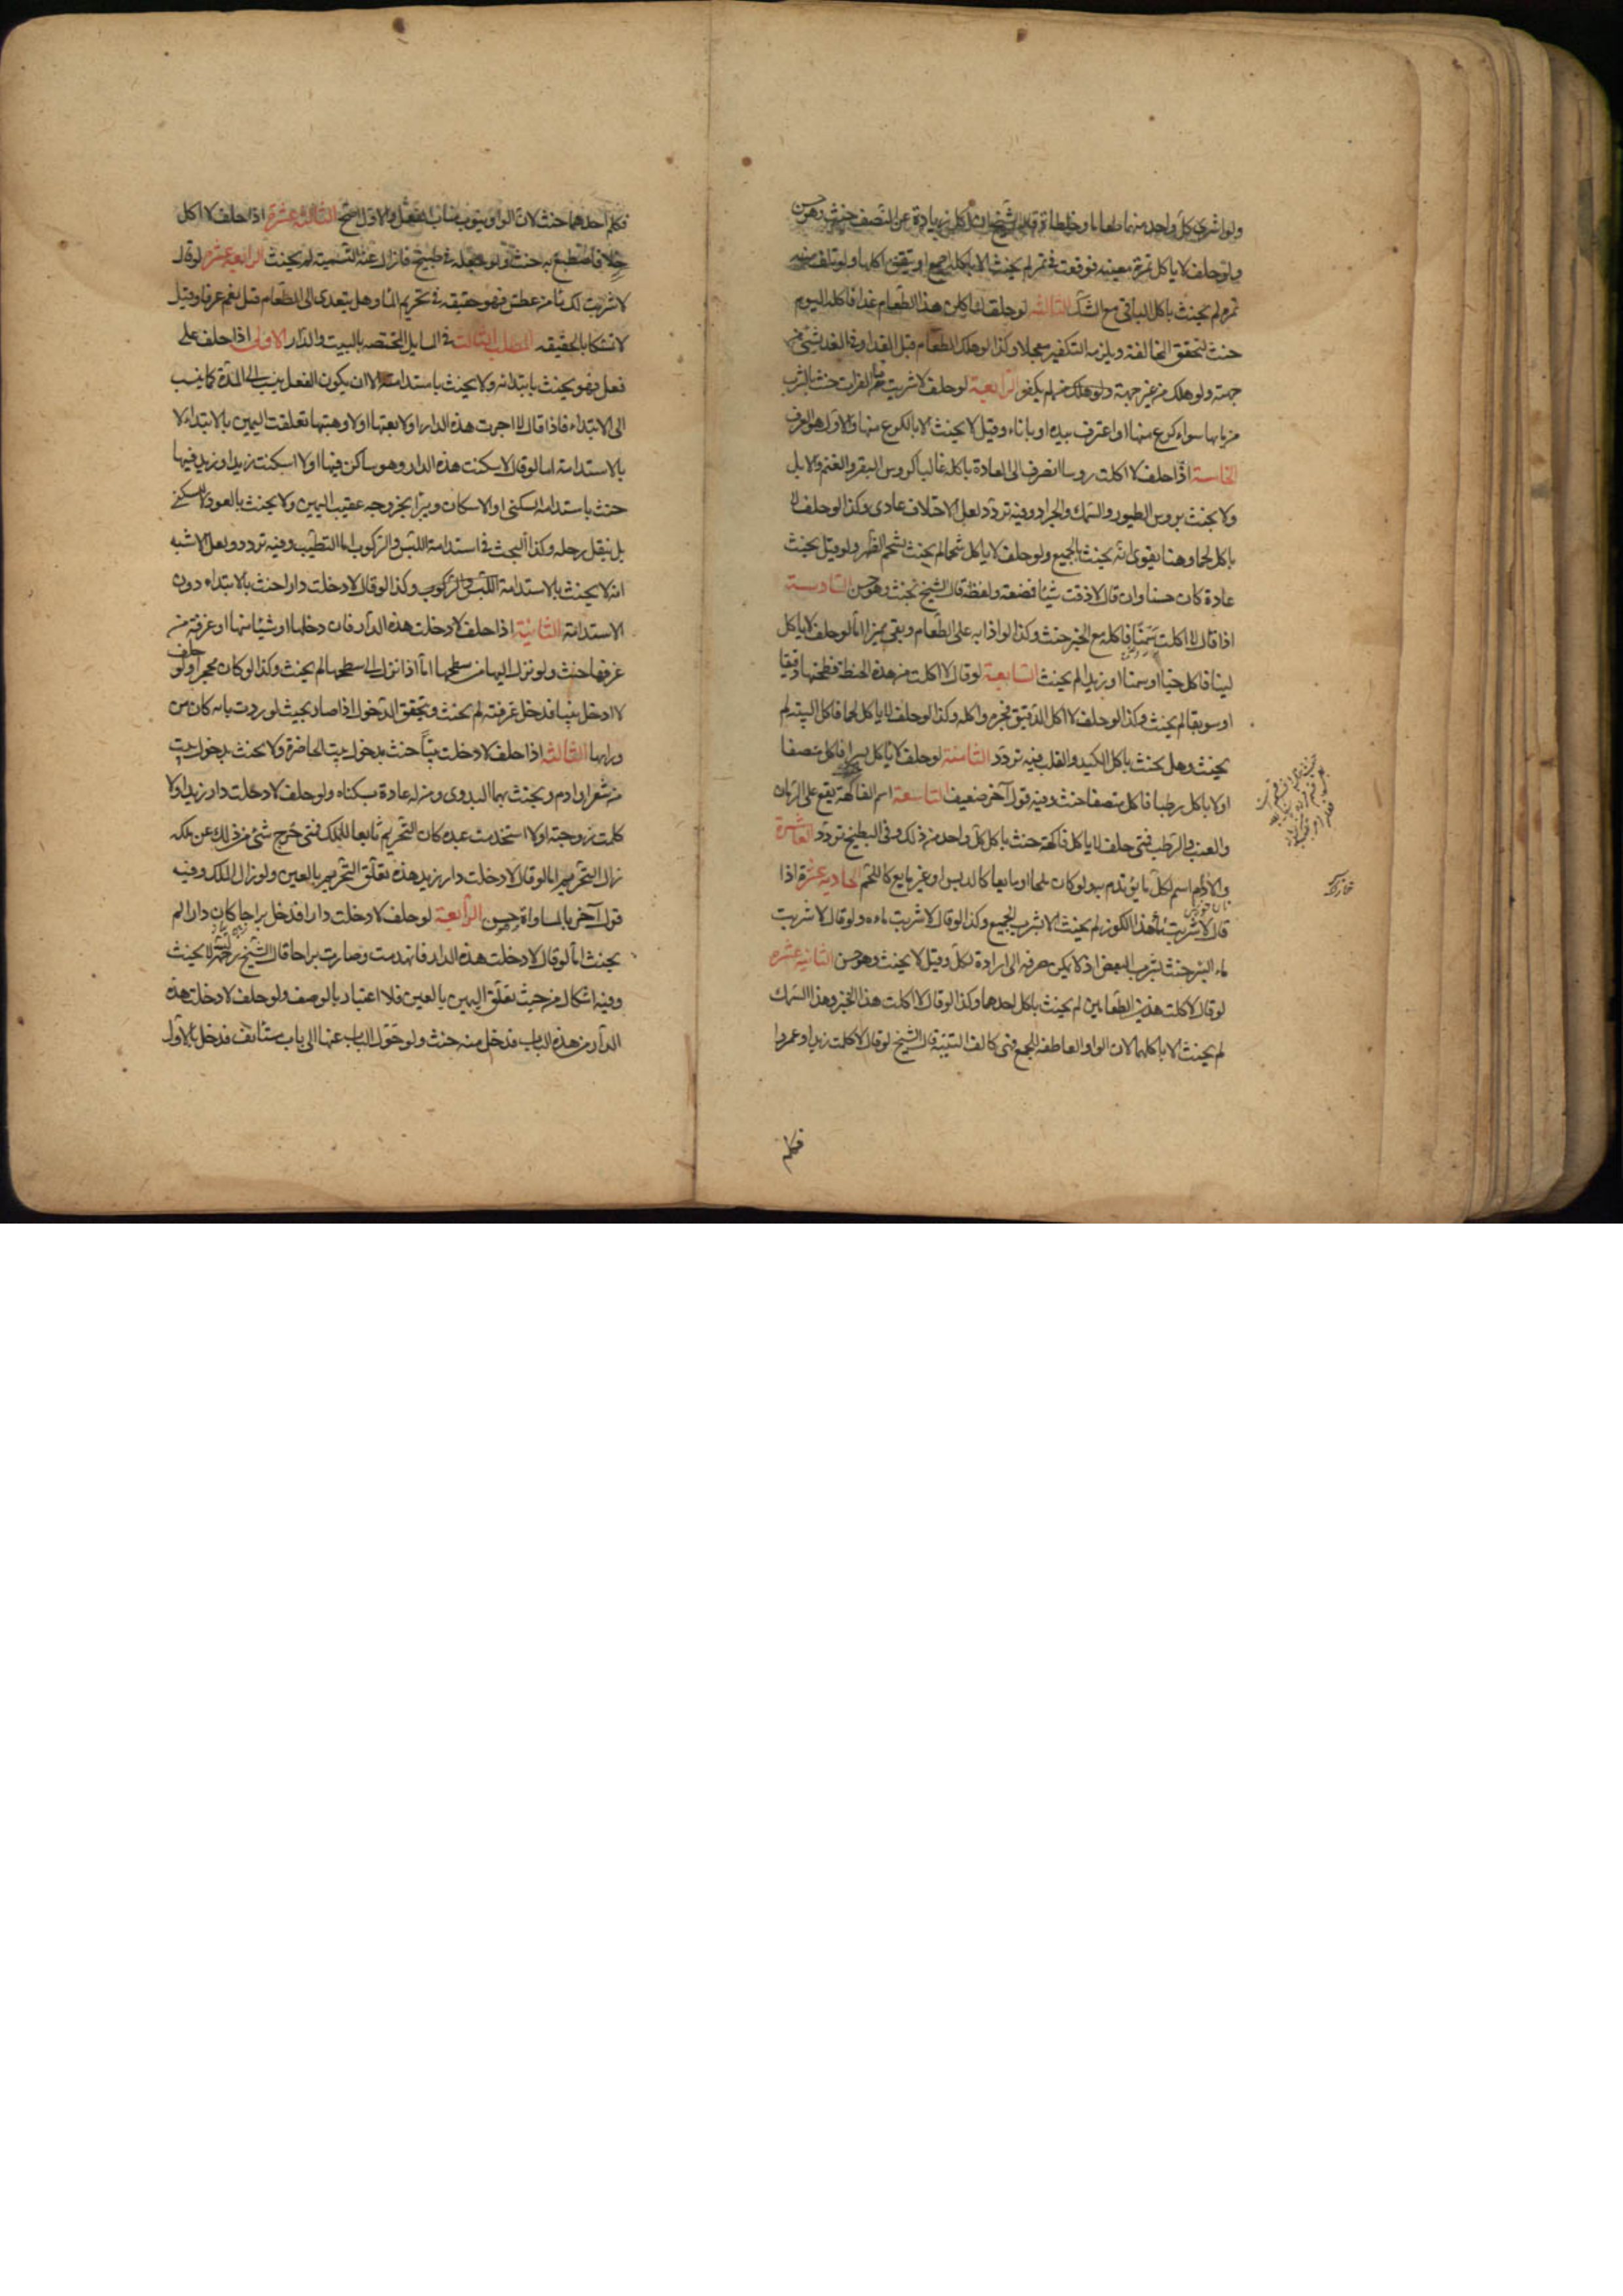 ولو اشترى كل واحد منهما طعاما وخلطاه قال الشيخ ان اكل زيادة عن النصف حنث وهو حسن
ولو حلف لا ياكل تمرة معينة فوقعت في تمر لم يحنث الا باكله اجمع او تيقن اكلها ولو تلف منه
تمرة لم يحنث باكل الباقي مع الشك الثالثة لو حلف لياكلن هذا الطعام غدا فاكله اليوم
حنث لتحقق المخالفة ويلزمه التكفير معجلا وكذا لو هلك الطعام قبل الغد او في الغد بشيء من
جهته ولو هلك من غير جهته لم يكفر الرابعة لو حلف لا شربت من الفرات حنث بالشرب
من مايها سواء كرع منها او اغترف بيده او باناء وقيل لا يحنث الا بالكرع منها والاول هو العرف
الخامسة اذا حلف لا اكلت روسا انصرف الى العادة باكله غالبا كروس البقر والغنم والابل
ولا يحنث بروس الطيور والسمك والجراد وفيه تردد لعل الاختلاف عادي وكذا لو حلف لا
ياكل لحما وهنا يقوى انه يحنث بالجميع ولو حلف لا ياكل شحما لم يحنث بشحم الظهر ولو قيل يحنث
عادة كان حسنا وان قال لا ذقت شيئا فمضغه ولفظه قال الشيخ يحنث وهو حسن السادسة
اذا قال لا اكلت سمنا فاكله مع الخبز حنث وكذا لو اذابه على الطعام وبقي مميزا اما لو حلف لا ياكل
لبنا فاكل جبنا او سمنا او زبدا لم يحنث السابعة لو قال لا اكلت من هذه الحنطة فطحنها دقيقا
او سويقا لم يحنث وكذا لو حلف لا اكل الدقيق فخبزه واكله وكذا لو حلف لا ياكل لحما فاكل الية لم
يحنث وهل يحنث باكل الكبد والقلب فيه تردد الثامنة لو حلف لا ياكل بسرا فاكل منصفا
او لا ياكل رطبا فاكل منصفا حنث وفيه قول آخر ضعيف التاسعة اسم الفاكهة يقع على الرمان
والعنب والرطب فمتى حلف لا ياكل فاكهة حنث باكل كل واحد من ذلك وفي البطيخ تردد العاشرة
والادام اسم لكل ما يؤتدم به ولو كان ملحا او مايعا كالدبس او غير مايع كاللحم الحادية عشرة اذا
قال لا شربت ماء هذا الكوز لم يحنث الا بشرب الجميع وكذا لو قال لا شربت ماءه ولو قال لا شربت
ماء البئر حنث بشرب البعض اذ لا يمكن صرفه الى ارادة الكل وقيل لا يحنث وهو حسن الثانية عشره
لو قال لا اكلت هذين الطعامين لم يحنث باكل احدهما وكذا لو قال لا اكلت هذا الخبز وهذا السمك
لم يحنث الا باكلهما لان الواو العاطفة للجمع فهي كالف التثنية قال الشيخ لو قال لا كلمت زيدا وعمروا
فكلم
فكلم احدهما حنث لان الواو ينوب مناب الفعل والاول اصح الثالثة عشرة اذا حلف لا اكل
خلا فاصطبغ به حنث ولو جعله في طبيخ فازال عنه التسمية لم يحنث الرابعة عشر لو قال
لا شربت لك ماء من عطش فهو حقيقة في تحريم الماء وهل يتعدى الى الطعام قيل نعم عرفا وقيل
لا تمسكا بالحقيقة المطلب الثالث في المسايل المختصة بالبيت والدار الاولى اذا حلف على
فعل فهو يحنث بابتدائه ولا يحنث باستدامته الا ان يكون الفعل ينسب الى المدة كما ينسب
الى الابتداء فاذا قال لا اجرت هذه الدار او لا بعتها او لا وهبتها تعلقت اليمين بالابتداء لا
بالاستدامة اما لو قال لا سكنت هذه الدار وهو ساكن فيها او لا اسكنت زيدا وزيد فيها
حنث باستدامة السكنى او الاسكان ويبرأ بخروجه عقيب اليمين ولا يحنث بالعود لا للسكنى
بل لنقل رحله وكذا البحث في استدامة اللبس والركوب اما التطيب وفيه تردد ولعل الاشبه
انه لا يحنث بالاستدامة اللبس والركوب وكذا لو قال لا دخلت دارا حنث بالابتداء دون
الاستدامة الثانية اذا حلف لا دخلت هذه الدار فان دخلها او شيئا منها او غرفة من
غرفها حنث ولو نزل اليها من سطحها اما اذا نزل الى سطحها لم يحنث وكذا لو كان محجرا ولو حلف
لا ادخل بيتا فدخل غرفته لم يحنث ويتحقق الدخول اذا صار بحيث لو رد بابه كان من
ورائها الثالثة اذا حلف لا دخلت بيتا حنث بدخول بيت الحاضرة ولا يحنث بدخول بيت
من شعر او ادم ويحنث بهما البدوي ومن له عادة بسكناه ولو حلف لا دخلت دار زيد او لا
كلمت زوجته او لا استخدمت عبده كان التحريم تابعا للملك فمتى خرج شيء من ذلك عن ملكه
زال التحريم اما لو قال لا دخلت دار زيد هذه تعلق التحريم بالعين ولو زال الملك وفيه
قول آخر بالمساواة حسن الرابعة لو حلف لا دخلت دارا فدخل براحا كان دارا لم
يحنث اما لو قال لا دخلت هذه الدار فانهدمت وصارت براحا قال الشيخ رحمه الله لا يحنث
وفيه اشكال من حيث تعلق اليمين بالعين فلا اعتبار بالوصف ولو حلف لا دخلت هذه
الدار من هذه الباب فدخل منه حنث ولو حول الباب عنها الى باب مستانف فدخل بالاول